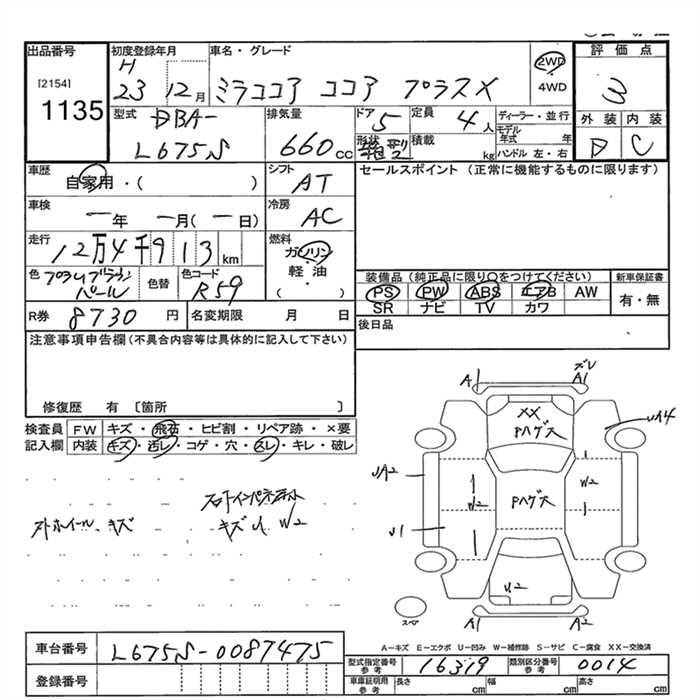 出品番号 初度登録年月 車名・グレード 評価点
[2154] 1135
H 23 12月 ミラココア ココア プラスX 2WD 4WD 3
型式 DBA-L675S 排気量 660cc ドア 5 定員 4人 ディーラー・並行 外装 内装
形状 積載 kg モデル年式 年 ハンドル 左・右 D C
車歴 自家用・( ) シフト AT セールスポイント (正常に機能するものに限ります)
車検 一年 一月(一日) 冷房 AC
走行 12万4千913km 燃料 ガソリン 軽・油 ( )
色 パール 色替 色コード R59
装備品 (純正品に限り○をつけてください) 新車保証書
PS PW ABS エアB AW 有・無
SR ナビ TV カワ
R券 8730円 名変期限 月 日 後日品
注意事項申告欄(不具合内容等は具体的に記入して下さい)
修復歴 有 〔箇所 〕
検査員 FW キズ・飛石・ヒビ割・リペア跡・×要
記入欄 内装 キズ・汚レ・コゲ・穴・スレ・キレ・破レ
フロントインパネ
アトホイール キズ キズ U W2
A1 ズレ A1
XX Pハゲス UA4
UA2 W2 Pハゲス W2
U1
U2
スペア A1 A2
A―キズ E―エクボ U―凹み W―補修跡 S―サビ C―腐食 XX―交換済
車台番号 L675S-0087475
型式指定番号 参考 16319 類別区分番号 参考 0014
登録番号 車庫証明用 参考 長さ cm 幅 cm 高さ cm